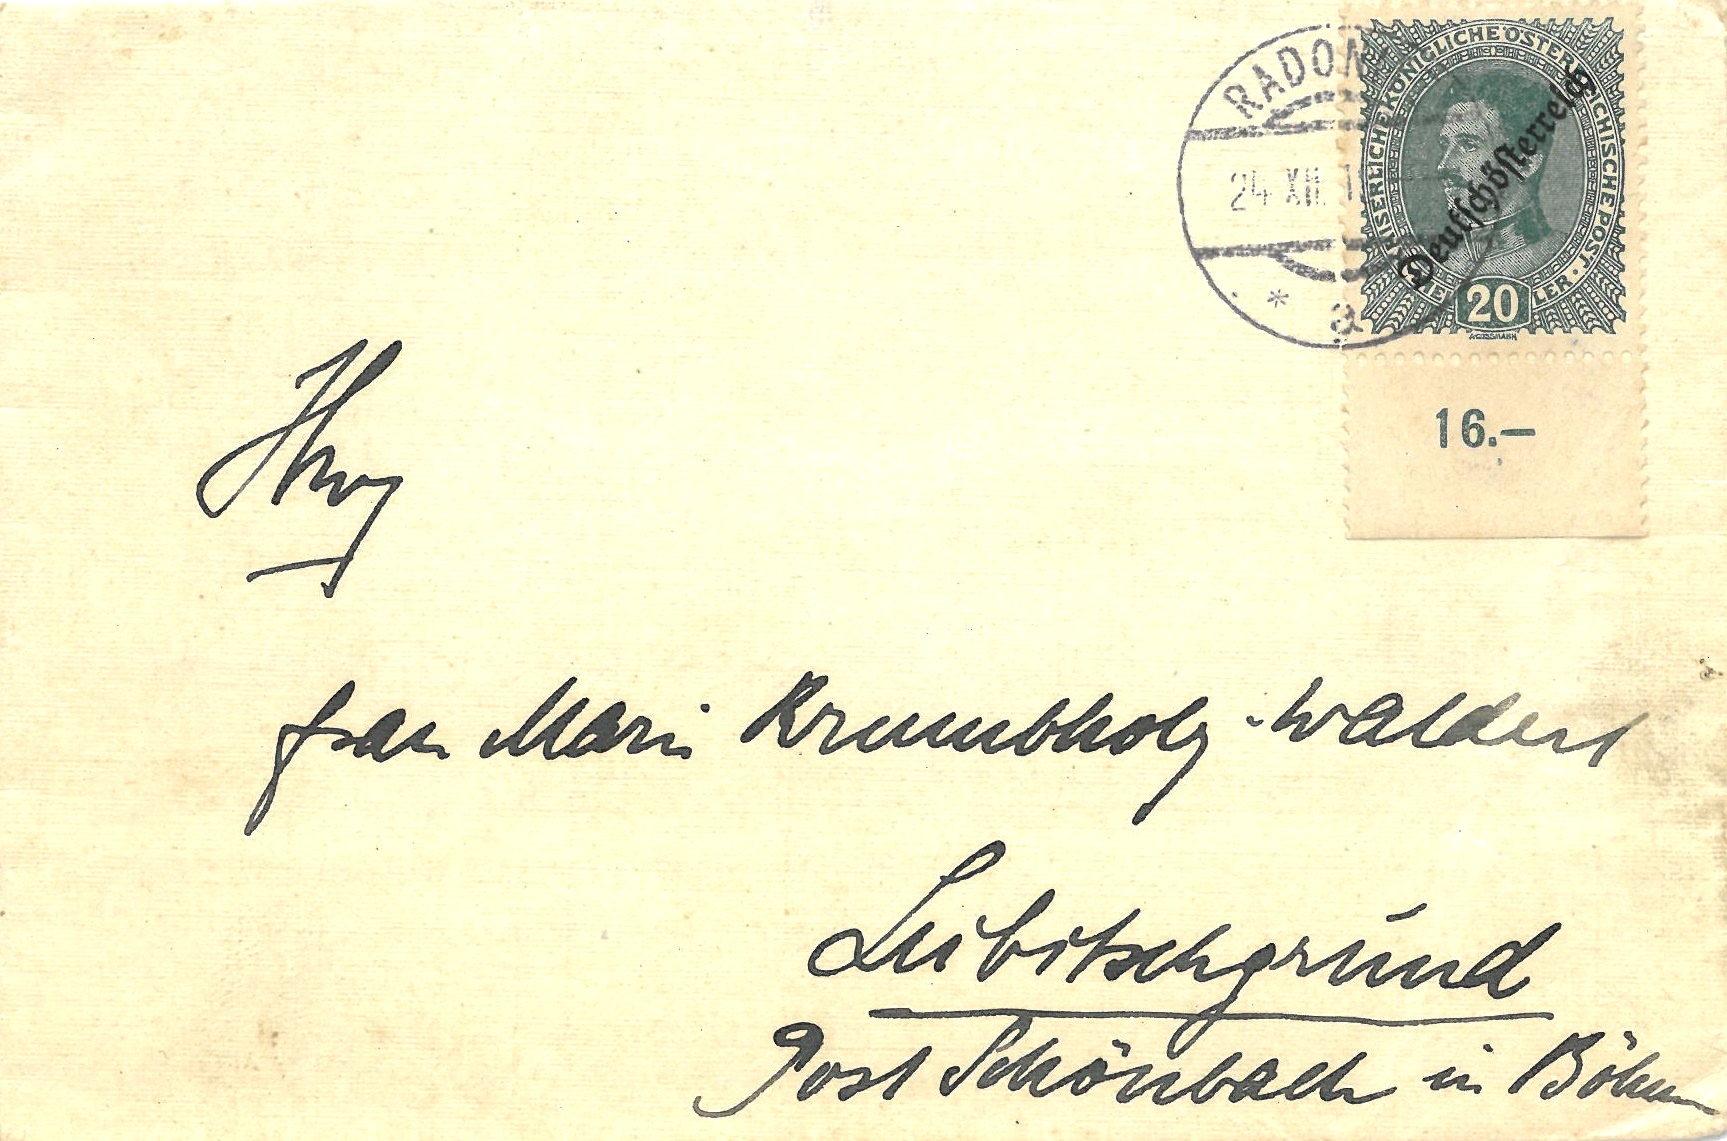 RADON
24 XII. 1
a
KAISERLICHE KÖNIGLICHE ÖSTERREICHISCHE POST
Deutschösterreich
20
16.–
frau Mari Krumbholz-Waldert
Lubitschgrund
Post Schönbach in Böhmen